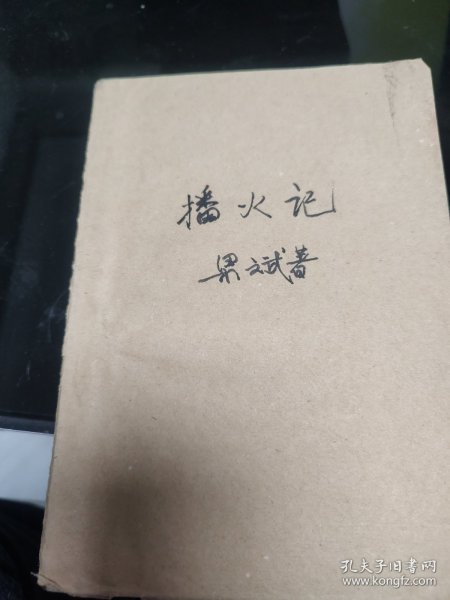 播火记
梁斌著
孔夫子旧书网
www.kongfz.com